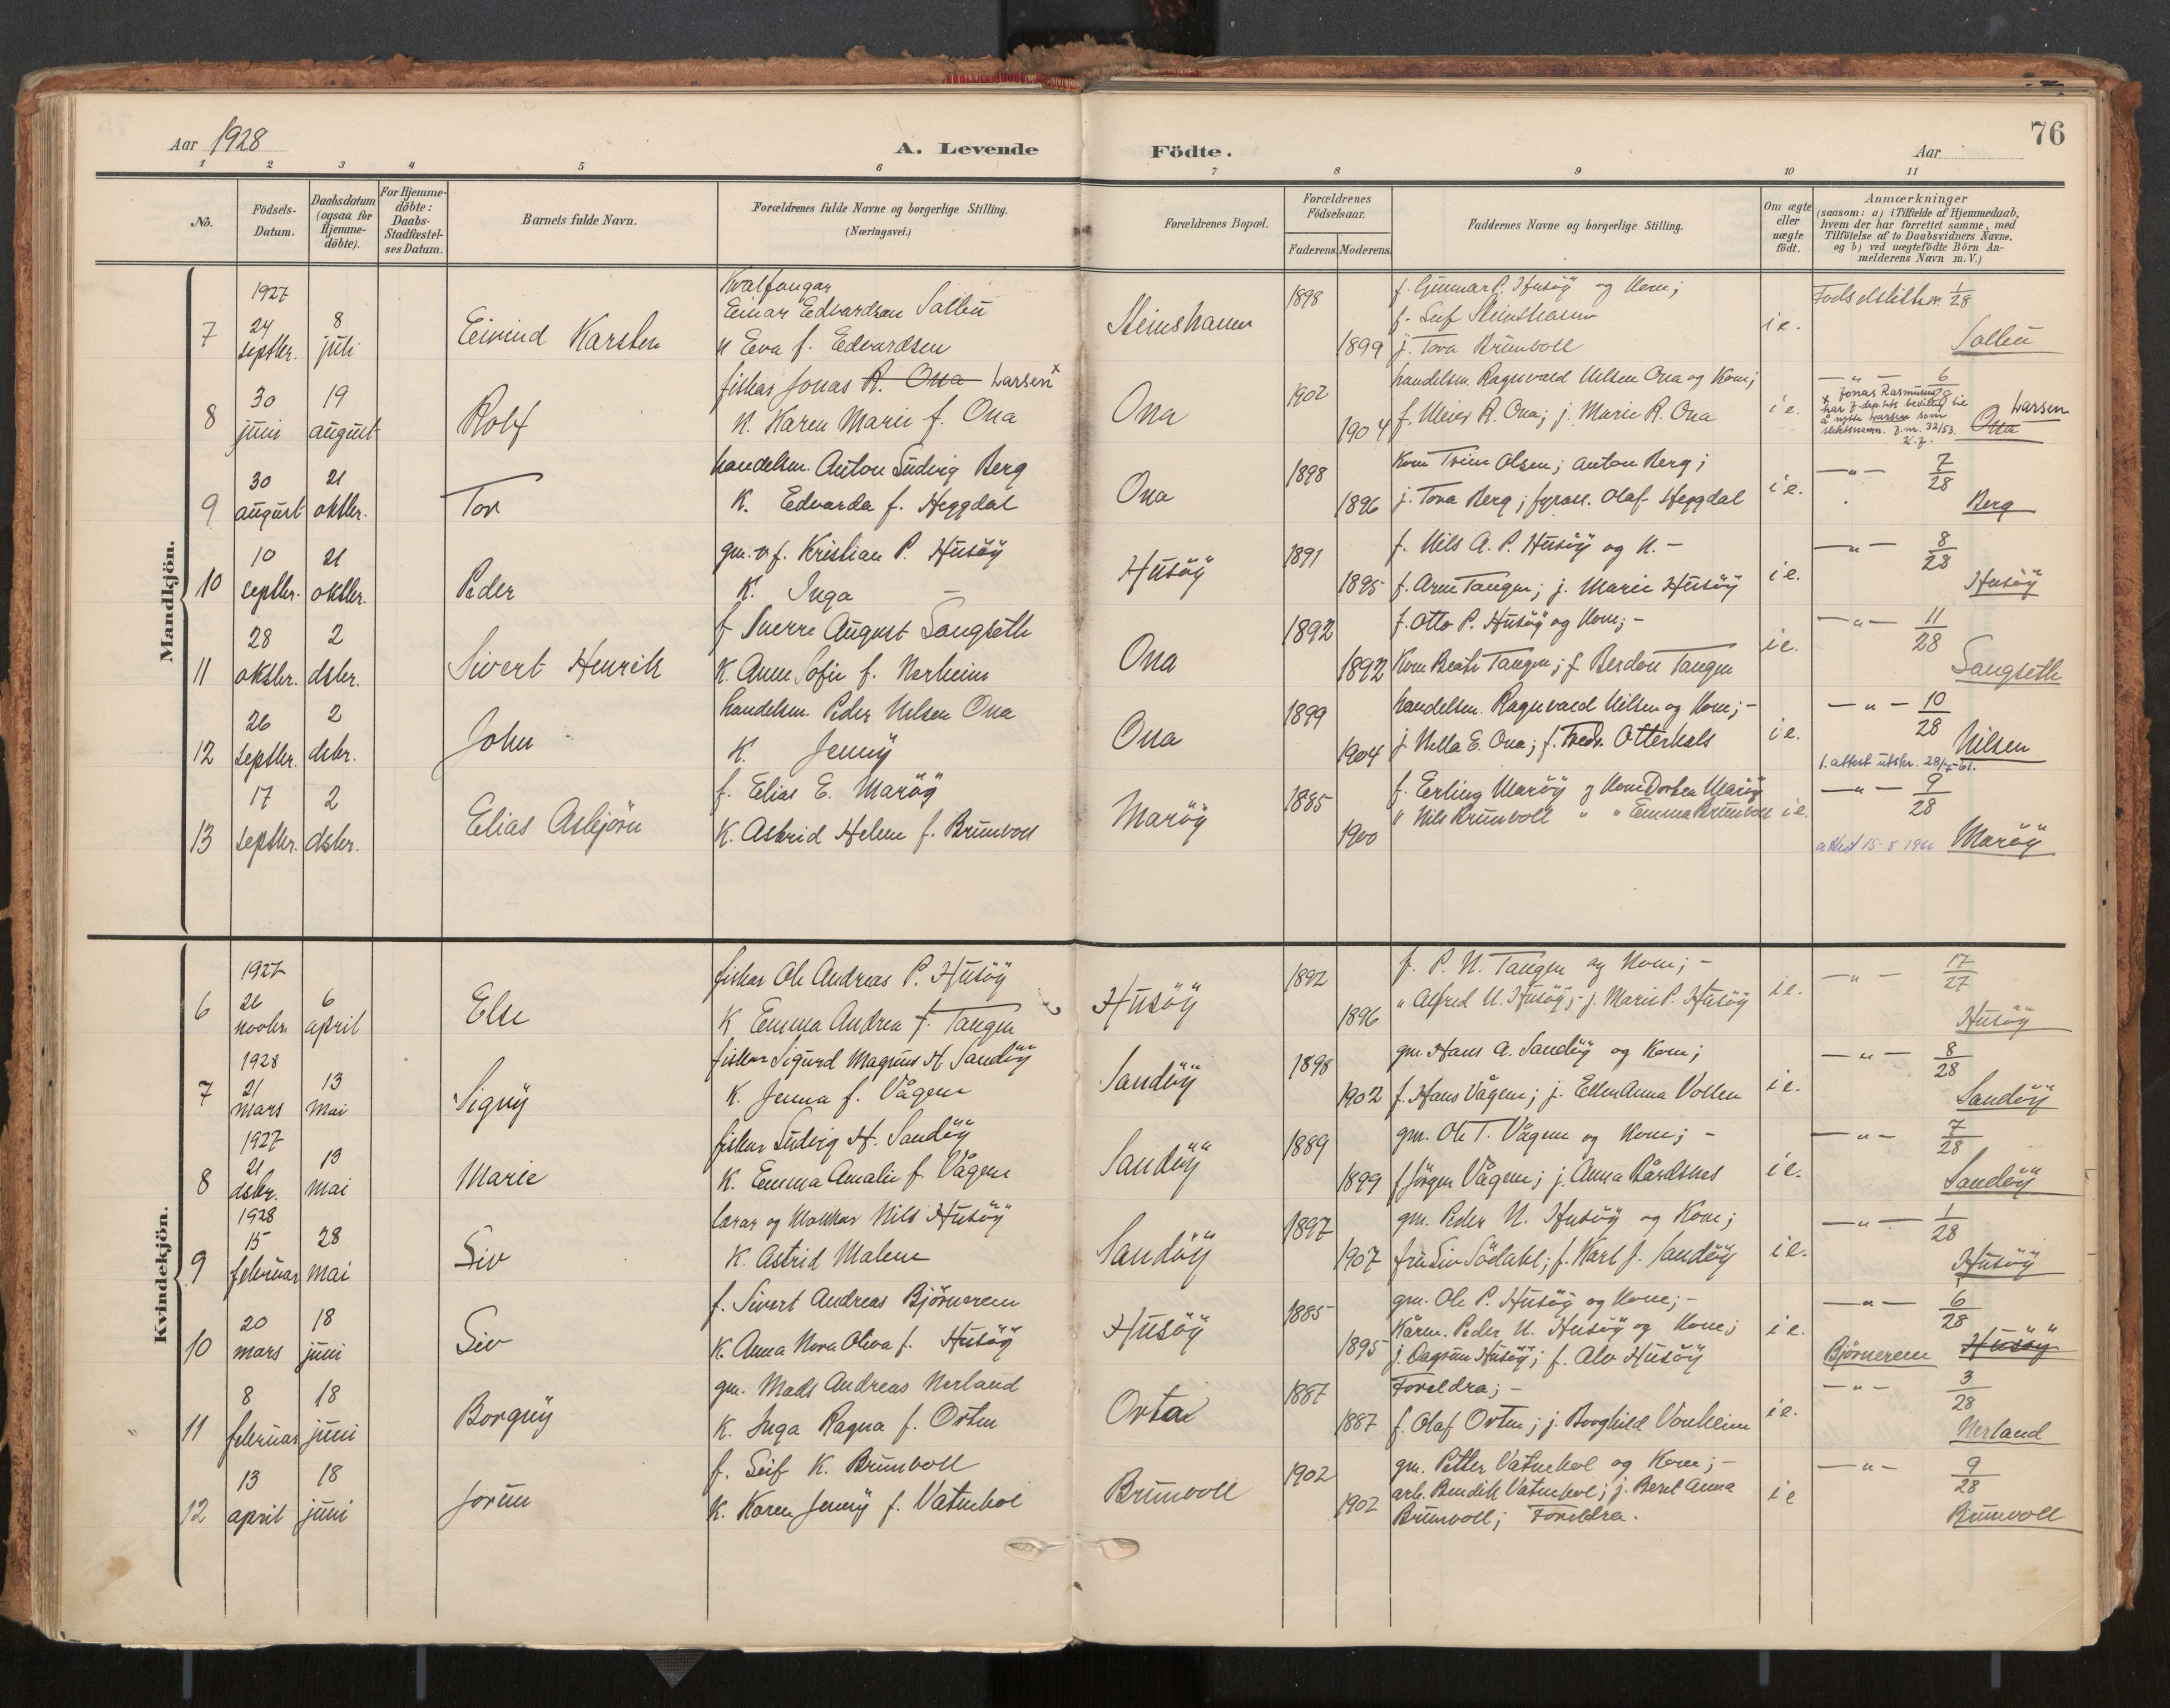 Aar 1928
A. Levende Födte.
Aar
76
1 2 3 4 5 6 7 8 9 10 11
No.
Födsels-Datum.
Daabsdatum (ogsaa for Hjemme-döbte).
For Hjemme-döbte: Daabs-Stadfæstel-ses Datum.
Barnets fulde Navn.
Forældrenes fulde Navne og borgerlige Stilling. (Næringsvei.)
Forældrenes Bopæl.
Forældrenes Födselsaar.
Faderens. Moderens.
Faddernes Navne og borgerlige Stilling.
Om ægte eller uægte födt.
Anmærkninger (saasom: a) i Tilfælde af Hjemmedaab, hvem der har forrettet samme, med Tilföielse af to Daabsvidners Navne, og b) ved uægtefödte Börn An-melderens Navn m.V.)
Mandkjön.
1927
7 24 septbr. 8 juli Eivind Karsten
Kvalfangar
Einar Edvardsen Sallen
K Eva f. Edvardsen
Steinshamn 1898 1899
f. Gunnar P. Husöy og Kone;
f. Leif Steinshamn
j. Tova Brunvoll
i e. Fødselslistenr. 1/28
8 30 juni 19 august Rolf
fiskar Jonas R. Ona Larsen x
K. Karen Marie f. Ona
Ona 1902 1904
handelsm. Ragnvald Nilsen Ona og Kone;
R. Ona; j. Marie R. Ona
i e. — " — 6/28
x Jonas Rasmussen
har J.dep.tets bevilling til
å nytte Larsen som
slektsnamn. J.nr. 32/53.
K.J.
Larsen
Ona
9 30 august 21 oktbr. Tor
handelsm. Anton Ludvig Berg
K. Edvarda f. Heggdal
Ona 1898 1896
Kone Trine Olsen; Anton Berg;
j. Tova Berg; fyrass. Olaf Heggdal
i e. — " — 7/28
Berg
10 10 septbr. 21 oktbr. Peder
gm. o f. Kristian P. Husöy
K. Inga —
Husöy 1891 1895
f. Nils A. P. Husöy og K. -
f. Arne Tangen; j. Marie Husöy
i e. — " — 8/28
Husöy
11 28 oktbr. 2 dsbr. Sivert Henrik
f Sverre August Langseth
K. Anne Sofie f. Nerheim
Ona 1892 1892
f. Otto P. Husöy og Kone; -
Kone Beate Tangen; f. Berdon Tangen
i e. — " — 11/28
Langseth
12 26 septbr. 2 dsbr. John
handelsm. Peder Nilsen Ona
K. Jenny
Ona 1899 1904
handelsm. Ragnvald Nilsen og Kone; -
j. Nella E. Ona; f. Fredr. Otterhals
i e. — " — 10/28
Nilsen
1. attest utskr. 28/ -61.
13 17 septbr. 2 dsbr. Elias Asbjörn
f. Elias E. Maröy
K. Astrid Helene f. Brunvoll
Maröy 1885 1900
f. Erling Maröy og Kone Dortea Maröy
" Nils Brunvoll " " Emma Brunvoll
i e. — " — 9/28
attest 15-8 1966 Maröy
Kvindekjön.
1927
6 26 novbr. 6 april Else
fiskar Ole Andreas P. Husöy
K Emma Andrea f. Tangen
Husöy 1892 1896
f. P. N. Tangen og Kone; -
" Alfred N. Husöy; - j. Marie P. Husöy
i e. — " — 17/27
Husöy
1928
7 21 mars 13 mai Signy
fiskar Sigurd Magnus H. Sandöy
K. Jenna f. Vågene
Sandöy 1898 1902
gm. Hans A. Sandöy og Kone;
f. Hans Vågene; j. Ellen Anna Vollen
i e. — " — 8/28
Sandöy
1927
8 21 dsbr. 13 mai Marie
fiskar Ludvig H. Sandöy
K. Emma Amalie f. Vågene
Sandöy 1889 1899
gm. Ole T. Vågene og Kone; -
f Jörgen Vågene; j. Anna Bårdsnes
i e. — " — 7/28
Sandöy
1928
9 15 februar 28 mai Siv
lærar og klokkar Nils Husöy
K. Astrid Malene
Sandöy 1897 1907
gm. Peder N. Husöy og Kone;
fru Siv Södahl; f. Karl J. Sandöy
i e. — " — 1/28
Husöy
10 20 mars 18 juni Siv
f. Sivert Andreas Björnerem
K. Anna Nora Oliva f. Husöy
Husöy 1885 1895
gm. Ole P. Husöy og Kone; -
Kårm. Peder N. Husöy og Kone;
j. Dagrun Husöy; f. Alv Husöy
i e. — " — 6/28
Björnerem Husöy
11 8 februar 18 juni Borgny
gm. Mads Andreas Nerland
K. Inga Ragna f. Orten
Orta 1887 1887
Foreldra; -
f. Olaf Orten; j. Borghild Vonheim
i e. — " — 3/28
Nerland
12 13 april 18 juni Jorun
f. Leif K. Brunvoll
K. Karen Jenny f. Vatnehol
Brunvoll 1902 1902
gm. Petter Vatnehol og Kone; -
arb. Bendik Vatnehol; j. Beret Anna
Brunvoll; Foreldra.
i e — " — 9/28
Brunvoll